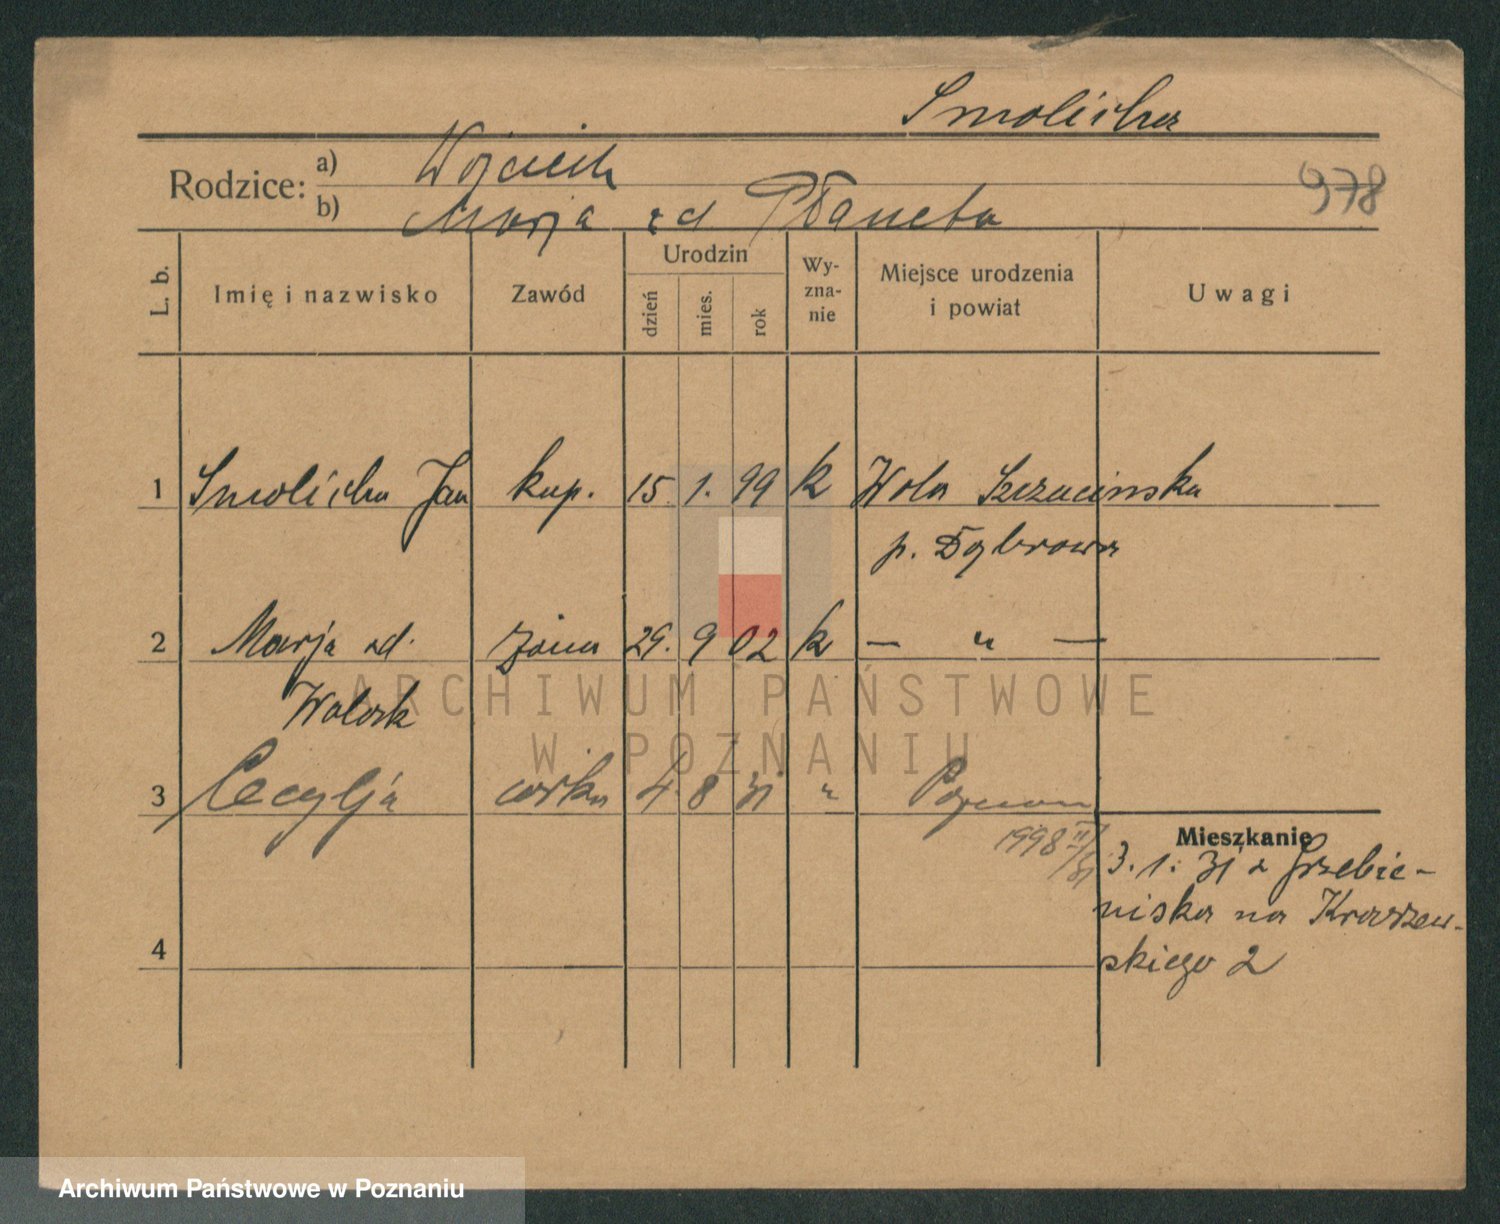 Smolicha
Rodzice: a) Wojciech
b) Marja z d Płaneta
978
L. b. Imię i nazwisko Zawód Urodzin dzień mies. rok Wy-zna-nie Miejsce urodzenia i powiat Uwagi
1 Smolicha Jan kup. 15. 1. 99 k Wola Szczucinska
p. Dąbrowa
2 Marja zd. żona 29. 9 02 k — " —
Wolak
3 Cecylja corka 4. 8 31 " Poznan
1998
Mieszkanie
3. 1. 31 z Grzebie-
niska na Kraszew-
skiego 2
4
ARCHIWUM PAŃSTWOWE
W POZNANIU
Archiwum Państwowe w Poznaniu